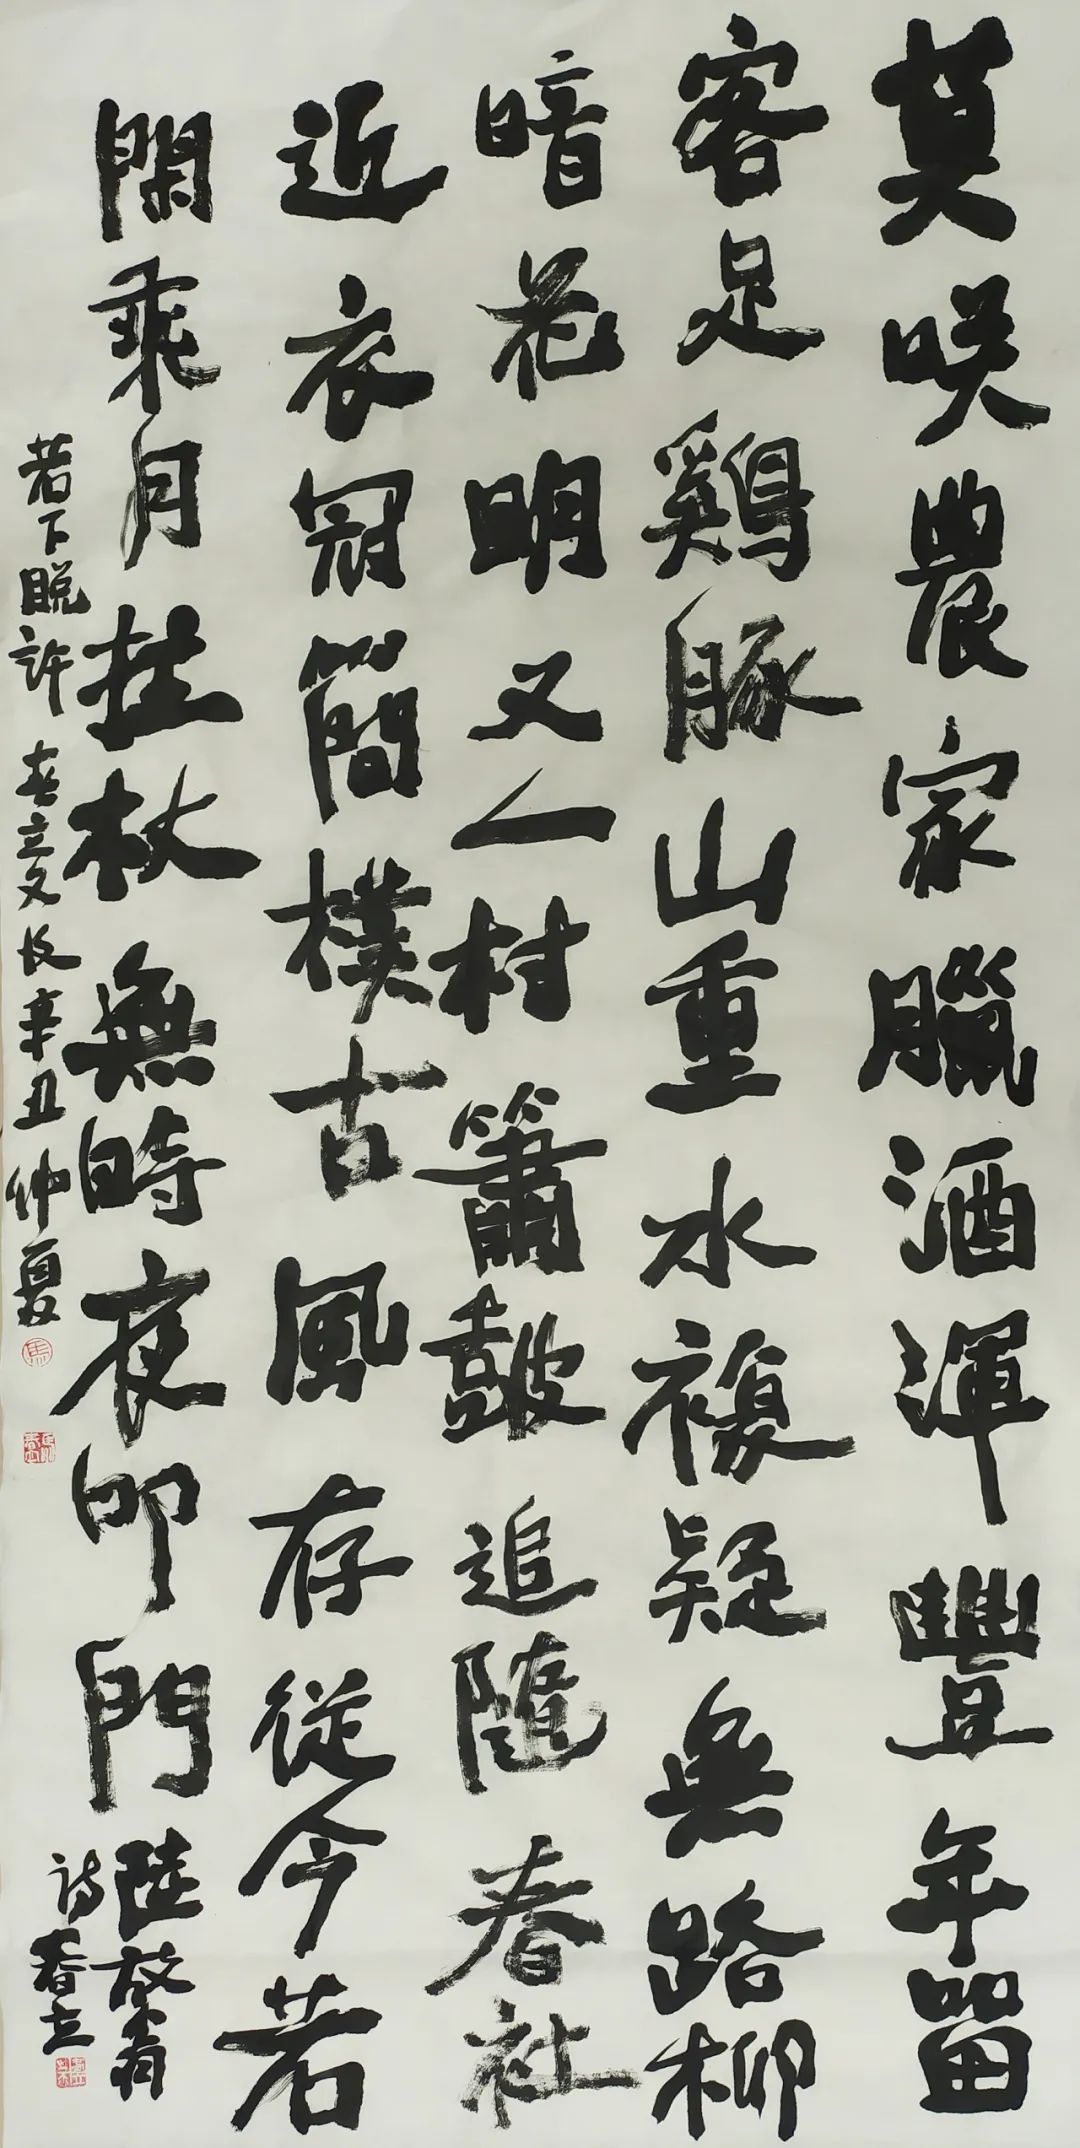 莫咲農家臘酒渾豐年留
客足鷄豚山重水複疑無路柳
暗花明又一村簫鼓追隨春社
近衣冠簡樸古風存從今若
閑乘月拄杖無時夜叩門 陸放翁
詩春立
若下脱許 春立又及辛丑仲夏